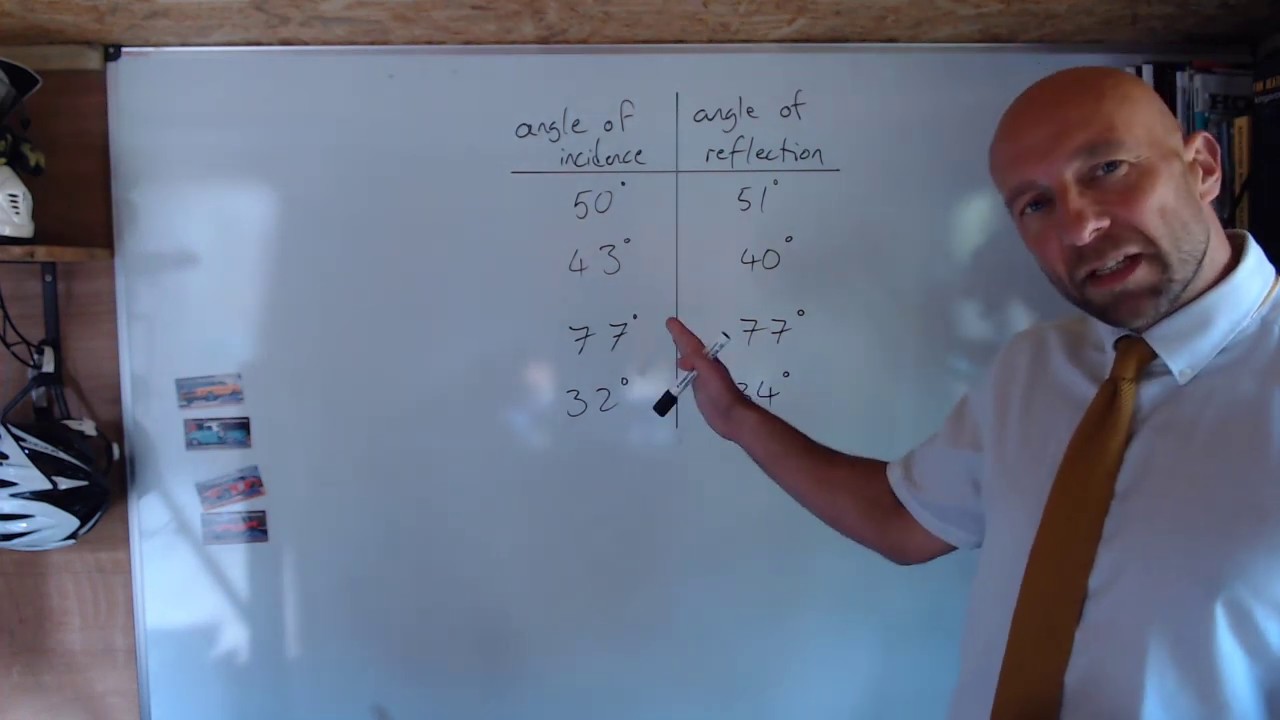 angle of incidence
angle of reflection
50° 51°
43° 40°
77° 77°
32° 34°